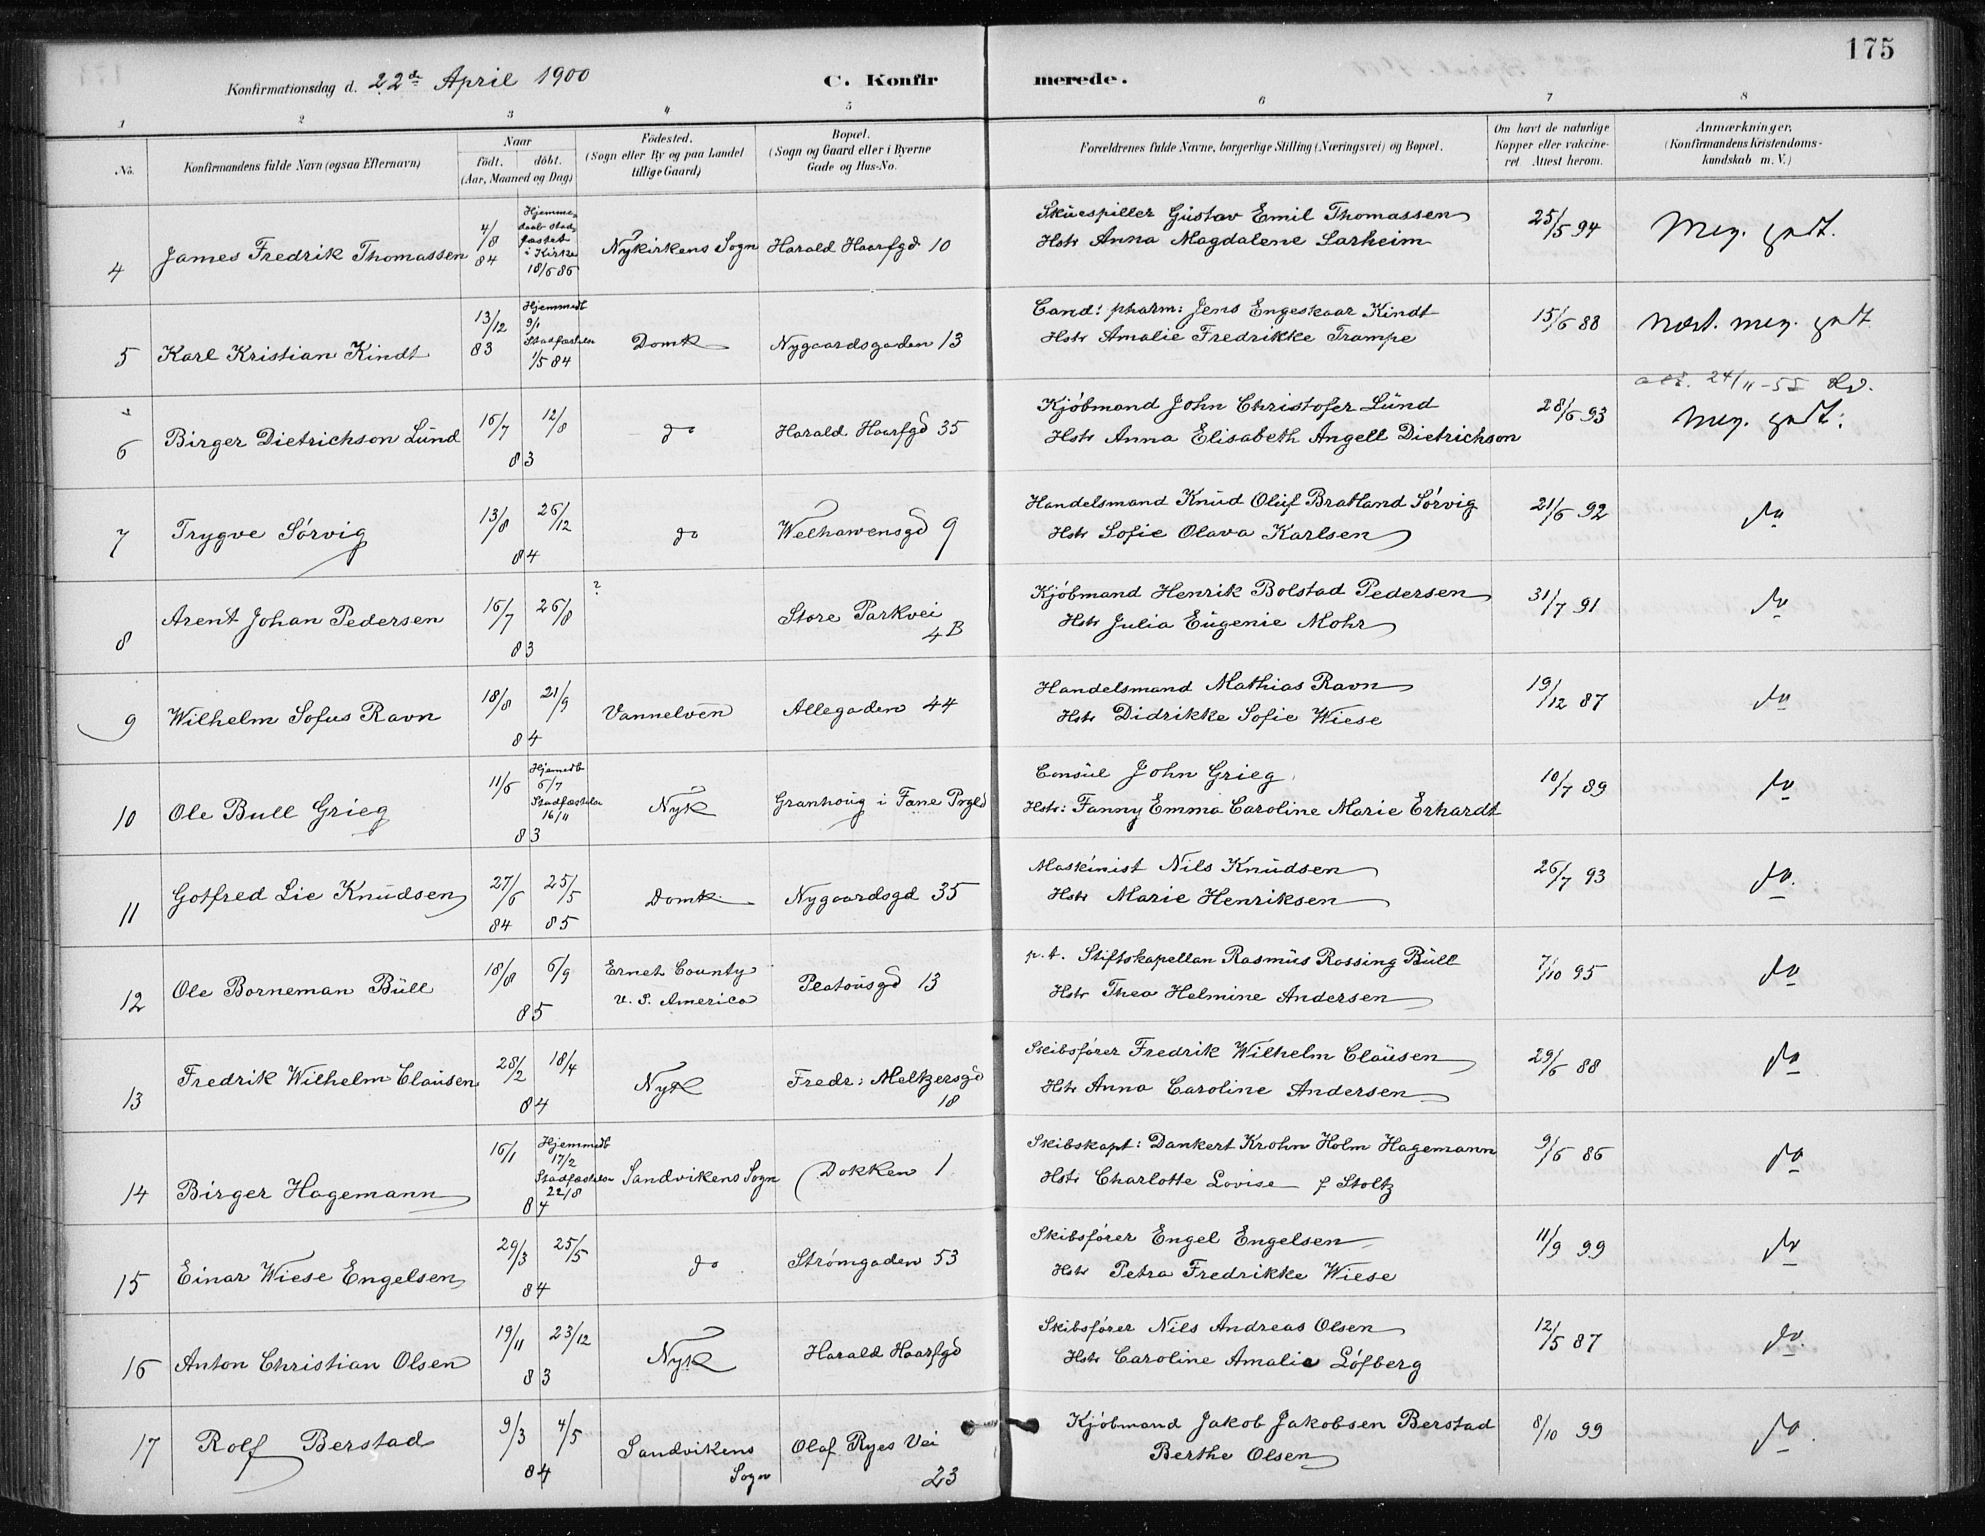 175
Konfirmationsdag d. 22de April 1900
C. Konfirmerede.
1 2 3 4 5 6 7 8
No.
Konfirmandens fulde Navn (ogsaa Efternavn)
Naar
födt. döbt.
(Aar, Maaned og Dag)
Födested.
(Sogn eller By og paa Landet
tillige Gaard)
Bopæl.
(Sogn og Gaard eller i Byerne
Gade og Hus-No.
Forældrenes fulde Navne, borgerlige Stilling (Næringsvei) og Bopæl.
Om havt de naturlige
Kopper eller vakcine-
ret. Attest herom.
Anmærkninger.
(Konfirmandens Kristendoms-
kundskab m. V.)
4 James Fredrik Thomassen 4/8 84 Hjemme-
daab stad-
fæstet
i Kirke
18/6 86 Nykirkens Sogn Harald Haarfgd 10
Skuespiller Gustav Emil Thomassen
Hstr Anna Magdalene Sarheim
25/5 94 Meg. godt.
5 Karl Kristian Kindt 13/12 83 Hjemmedb
9/1
Stadfæstelse
1/5 84 Domk Nygaardsgaden 13
Cand: pharm: Jens Engeskaar Kindt
Hstr Amalie Fredrikke Trampe
15/6 88 Næst. meg. godt
24/11-55
6 Birger Dietrichson Lund 16/7 12/8 83 do Harald Haarfgd 35
Kjøbmand John Christofer Lund
Hstr Anna Elisabeth Angell Dietrichson
28/6 93 Meg. godt:
7 Trygve Sørvig 13/8 26/12 84 do Welhavensgd 9
Handelsmand Knud Oluf Bratland Sørvig
Hstr Sofie Olava Karlsen
21/6 92 do
8 Arent Johan Pedersen 16/7 26/8 83 ? Store Parkvei
4B
Kjøbmand Henrik Bolstad Pedersen
Hstr Julia Eugenie Mohr
31/7 91 do
9 Wilhelm Sofus Ravn 18/8 21/9 84 Vannelven Allegaden 44
Handelsmand Mathias Ravn
Hstr Didrikke Sofie Wiese
19/12 87 do
10 Ole Bull Grieg 11/6 Hjemedb
6/7
Stadfæstelse
16/11
83 Nyk Granhoug i Fane Prgld
Consul John Grieg
Hstr: Fanny Emma Caroline Marie Erhardt
10/7 89 do
11 Gotfred Lie Knudsen 27/6 84 25/5 85 Domk. Nygaardsgd 35
Maskinist Nils Knudsen
Hstr Marie Henriksen
26/7 93 do.
12 Ole Borneman Bull 18/8 6/9 85 Ernet County
U. S. America Platousgd 13
p.t. Stiftskapellan Rasmus Rossing Bull
Hstr Thea Helmine Andersen
7/10 95 do
13 Fredrik Wilhelm Clausen 28/2 18/4 84 Nyk Fredr: Meltzersgd
18
Skibsfører Fredrik Wilhelm Clausen
Hstr Anna Caroline Andersen
29/6 88 do
14 Birger Hagemann 16/1 Hjemmedb
17/2
Stadfæstelse
22/8
84 Sandvikens Sogn Dokken 1
Skibskapt: Dankert Krohn Holm Hagemann
Hstr Charlotte Lovise f Stoltz
9/6 86 do
15 Einar Wiese Engelsen 29/3 25/5 84 do Strømgaden 53
Skibsfører Engel Engelsen
Hstr Petra Fredrikke Wiese
11/9 99 do
16 Anton Christian Olsen 19/11 23/12 83 Nyk Harald Haarfgd
Skibsfører Nils Andreas Olsen
Hstr Caroline Amalie Løfberg
12/5 87 do.
17 Rolf Berstad 9/3 4/5 84 Sandvikens
Sogn Olaf Ryes Vei
23
Kjøbmand Jakob Jakobsen Berstad
Berthe Olsen
8/10 99 do.